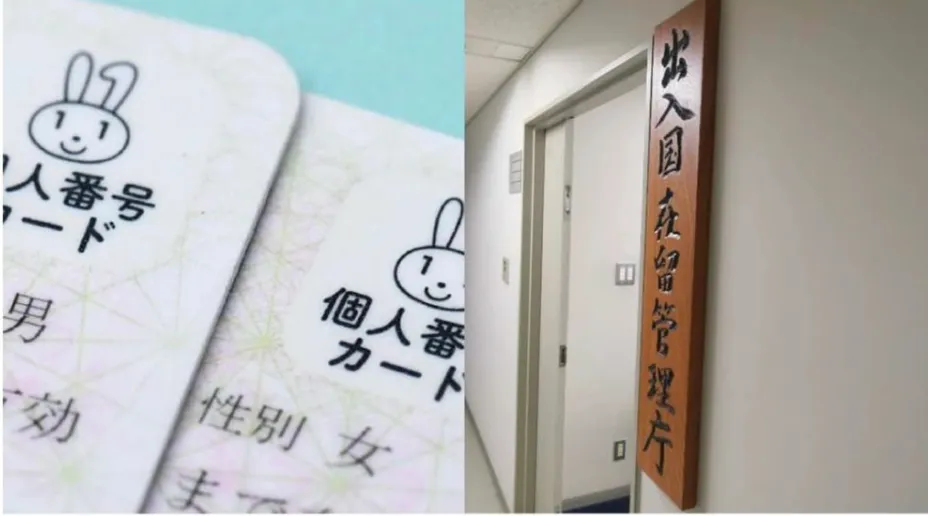 人番号
カード
男
効
個人番
カード
性別 女
まで
出入国在留管理庁